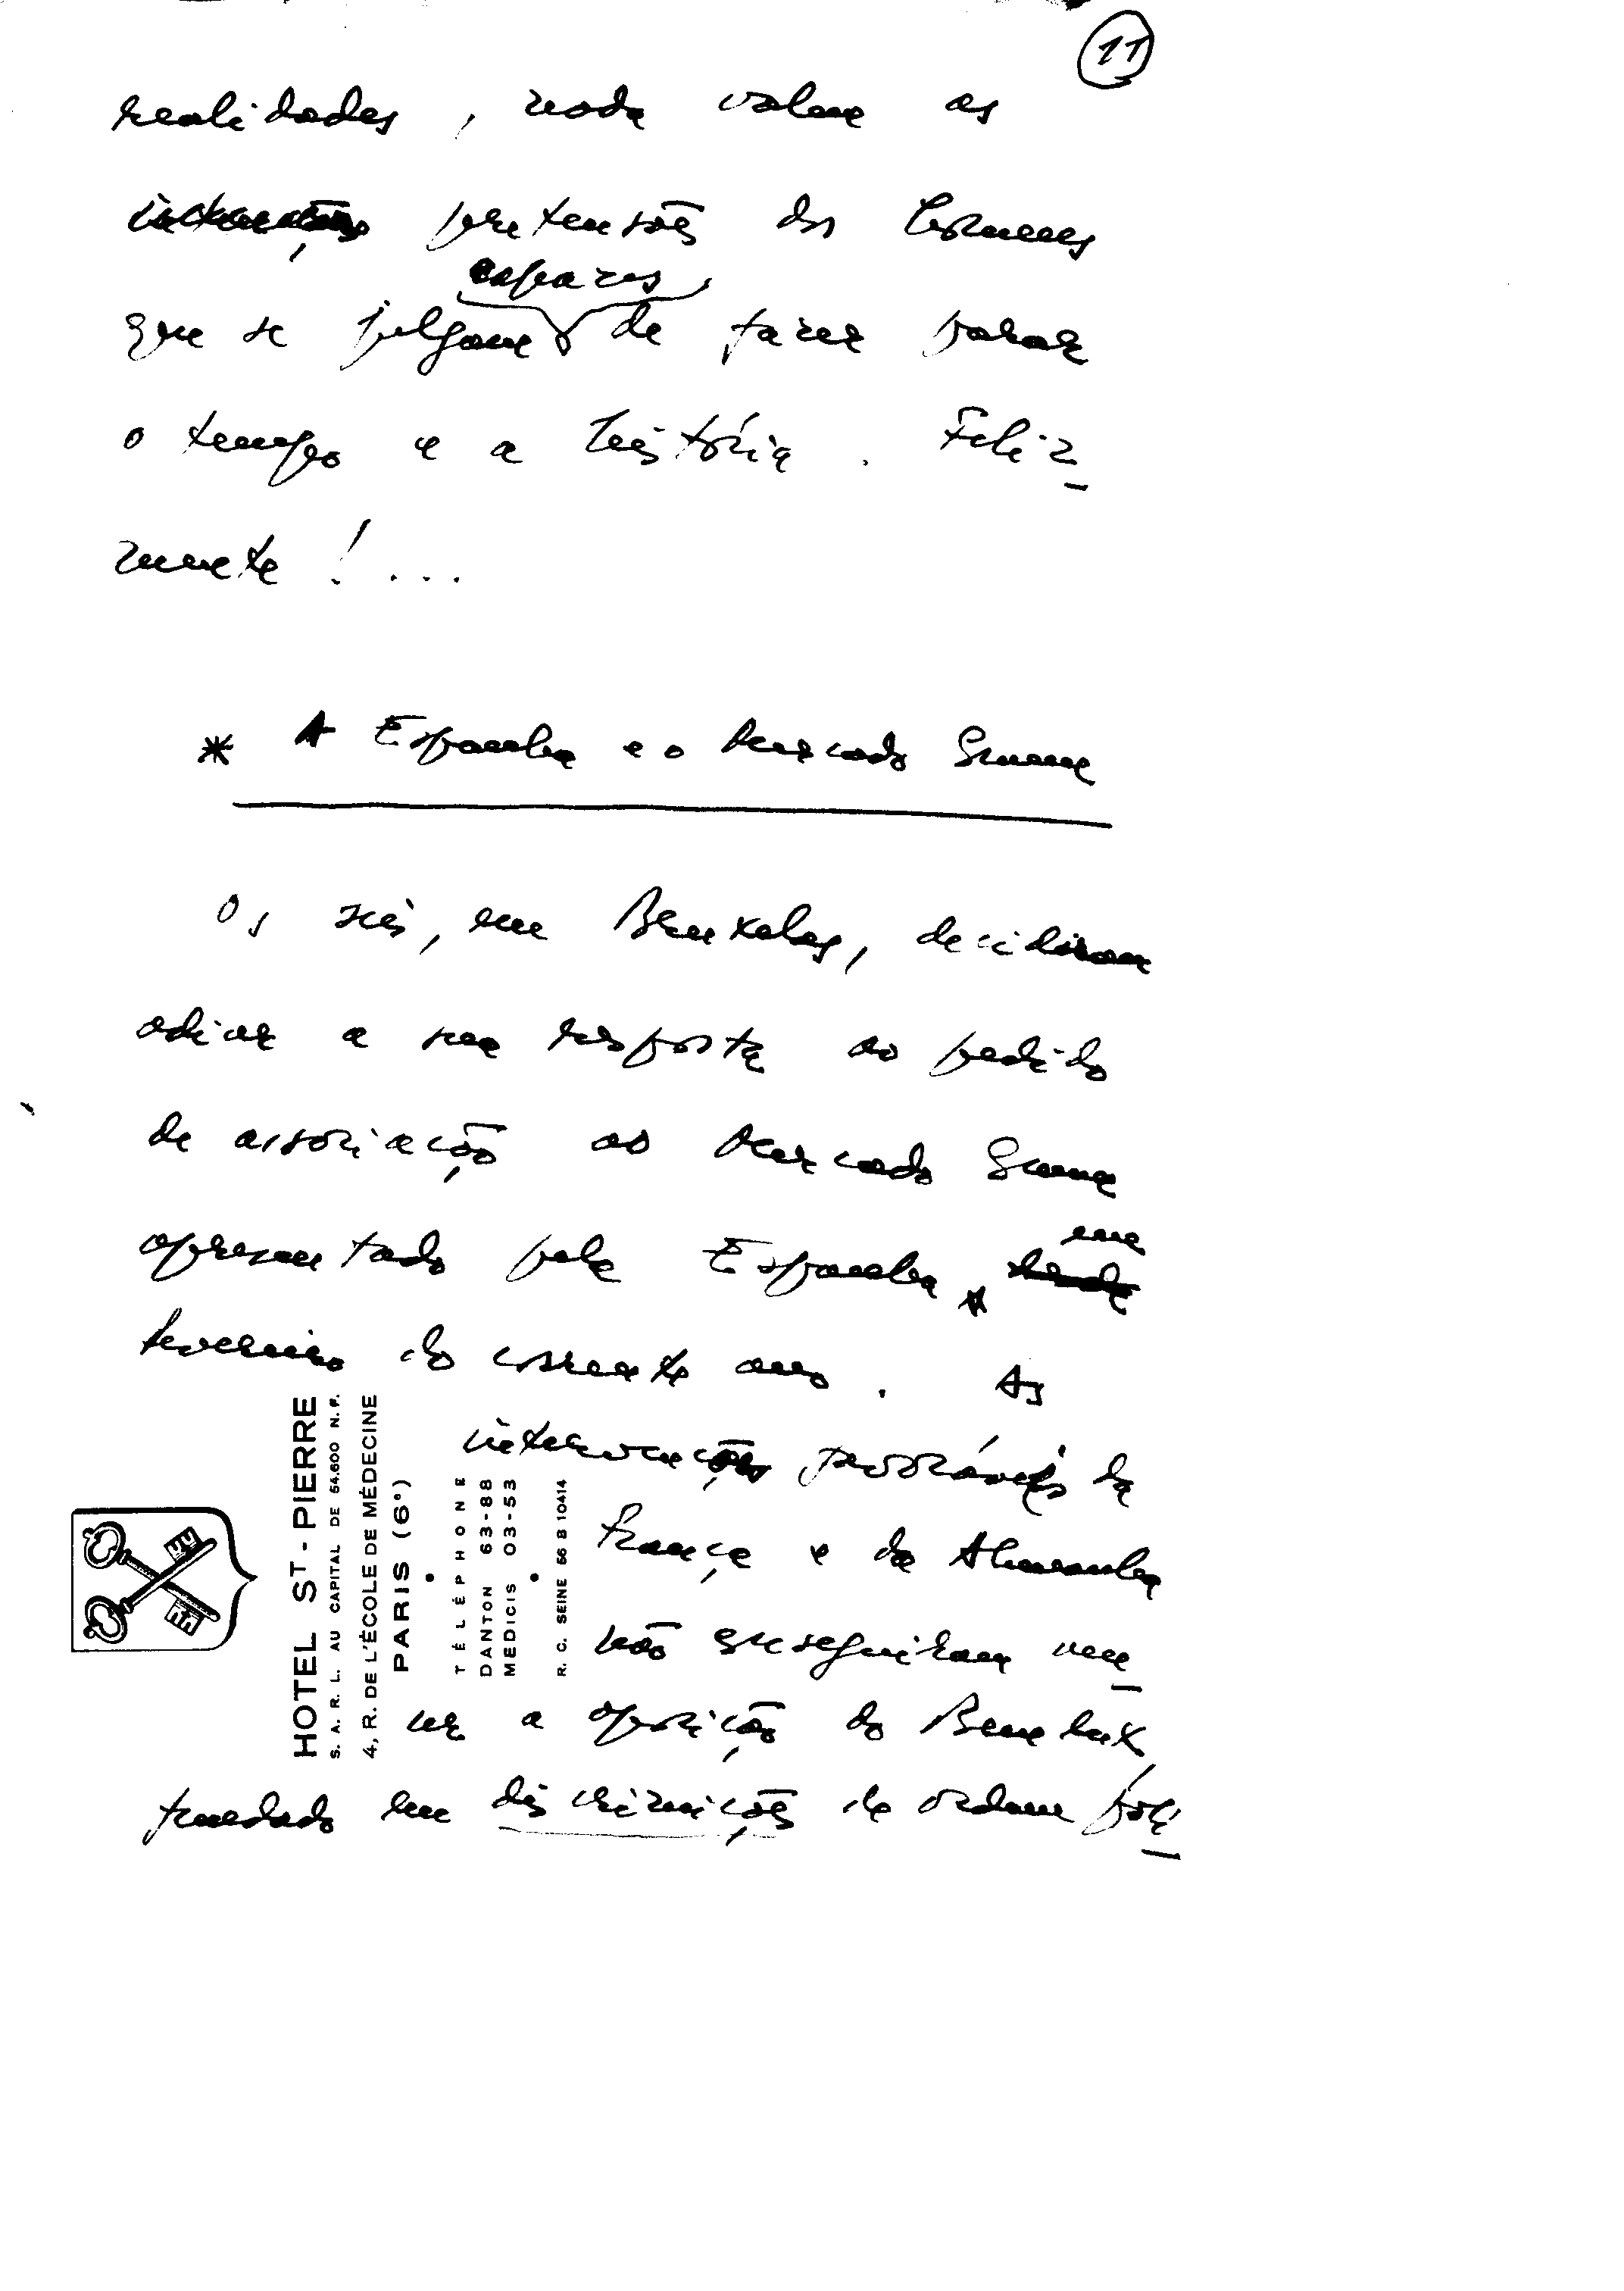 11
realidades, nada valem as
pretensões dos homens
capazes
que se julgam de fazer parar
o tempo e a história. Feliz
mente!...
* A Espanha e o Mercado Comum
Os seis, em Bruxelas, decidiram
adiar a sua resposta ao pedido
de associação ao Mercado Comum
em
apresentado pela Espanha
fevereiro do corrente ano. As
intervenções favoráveis da
França e da Alemanha
não conseguiram ven
cer a oposição do Benelux
fundado em discriminações de ordem polí
HOTEL ST-PIERRE
S. A. R. L. AU CAPITAL DE 54.600 N. F.
4, R. DE L'ÉCOLE DE MÉDECINE
PARIS (6e)
TÉLÉPHONE
DANTON 63-88
MEDICIS 03-53
R. C. SEINE 56 B 10414